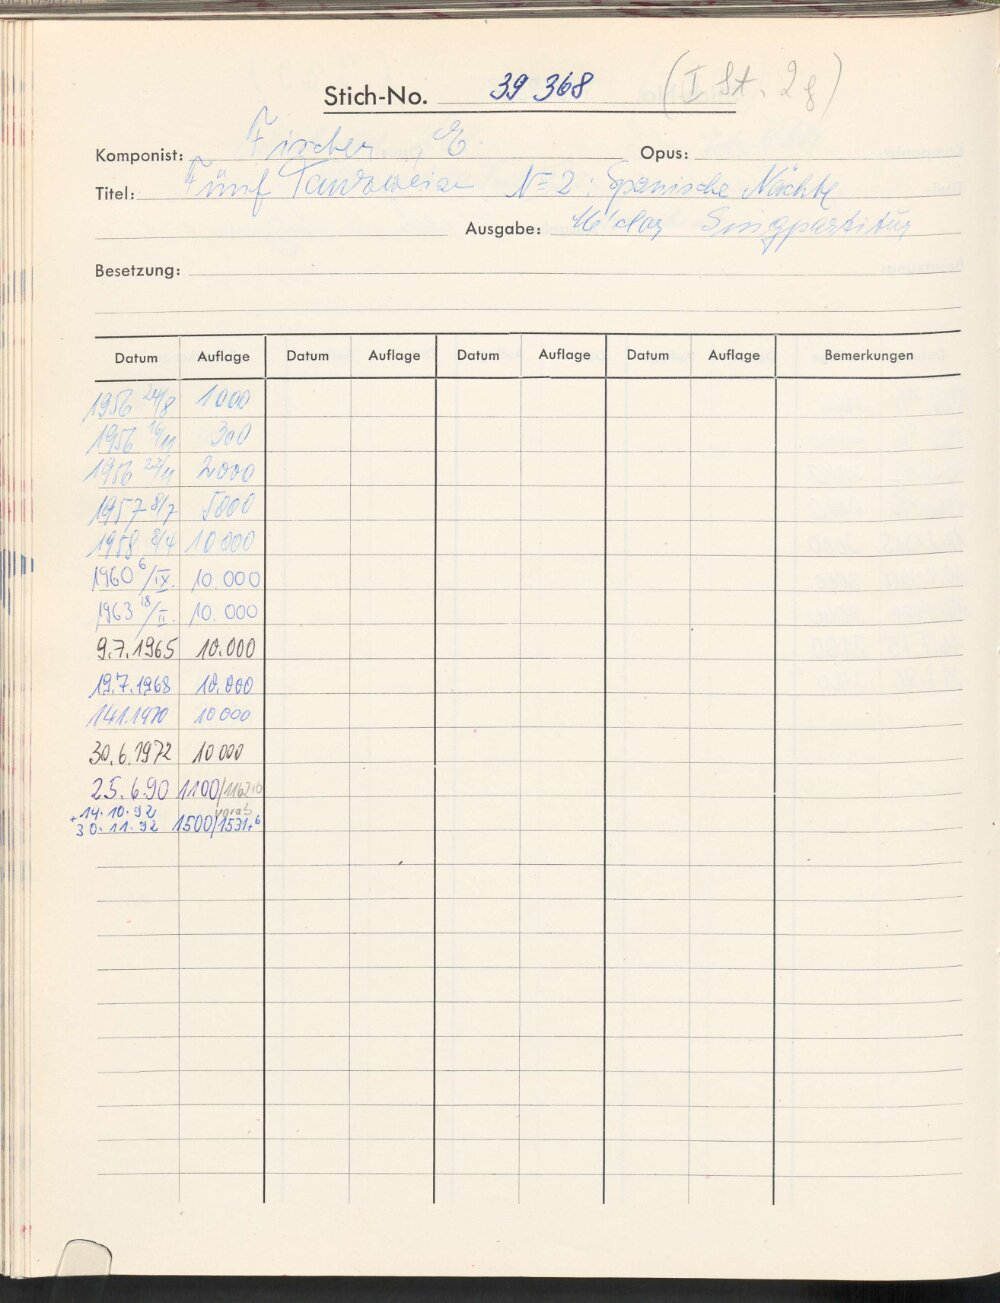 Stich-No. 39 368 (I St. 2 g)
Komponist: Fischer, E. Opus:
Titel: Fünf Tanzweisen No 2: Spanische Nächte
Ausgabe: M'chor Singpartitur
Besetzung:
Datum Auflage Datum Auflage Datum Auflage Datum Auflage Bemerkungen
1956 24/8 1000
1956 16/11 300
1956 27/11 2000
1957 8/7 5000
1958 8/4 10000
1960 6/IX. 10.000
1963 18/II. 10.000
9.7.1965 10.000
19.7.1968 10.000
14.1.1970 10000
30.6.1972 10000
25.6.90 1100/1162+6
+14.10.92 vorab
30.11.92 1500/1531+6